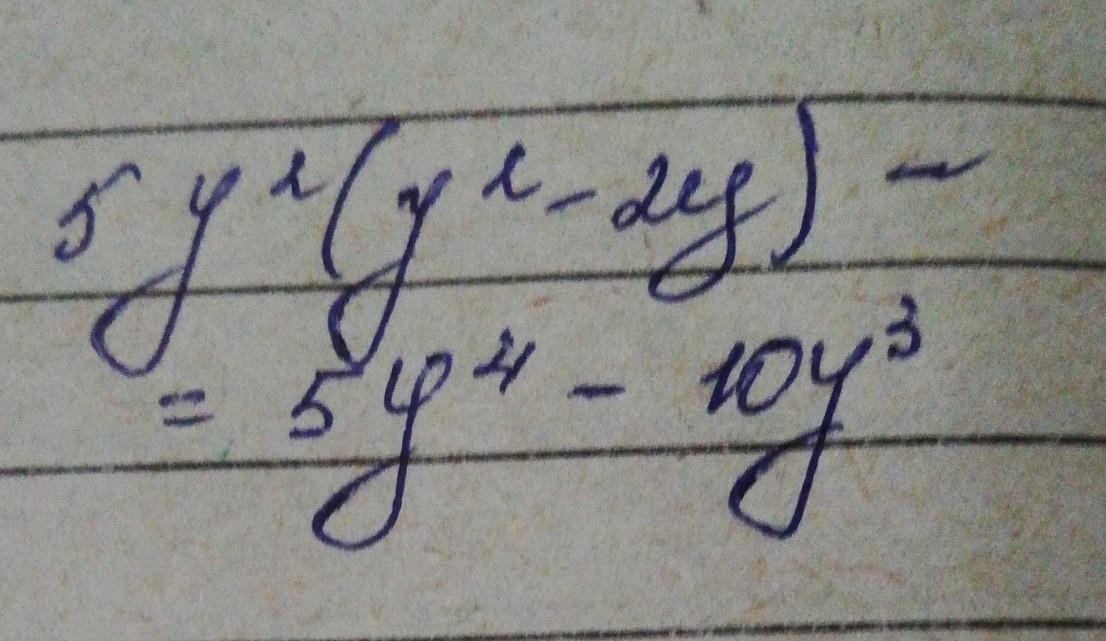 5y²(y²-2y) -
= 5y⁴ - 10y³